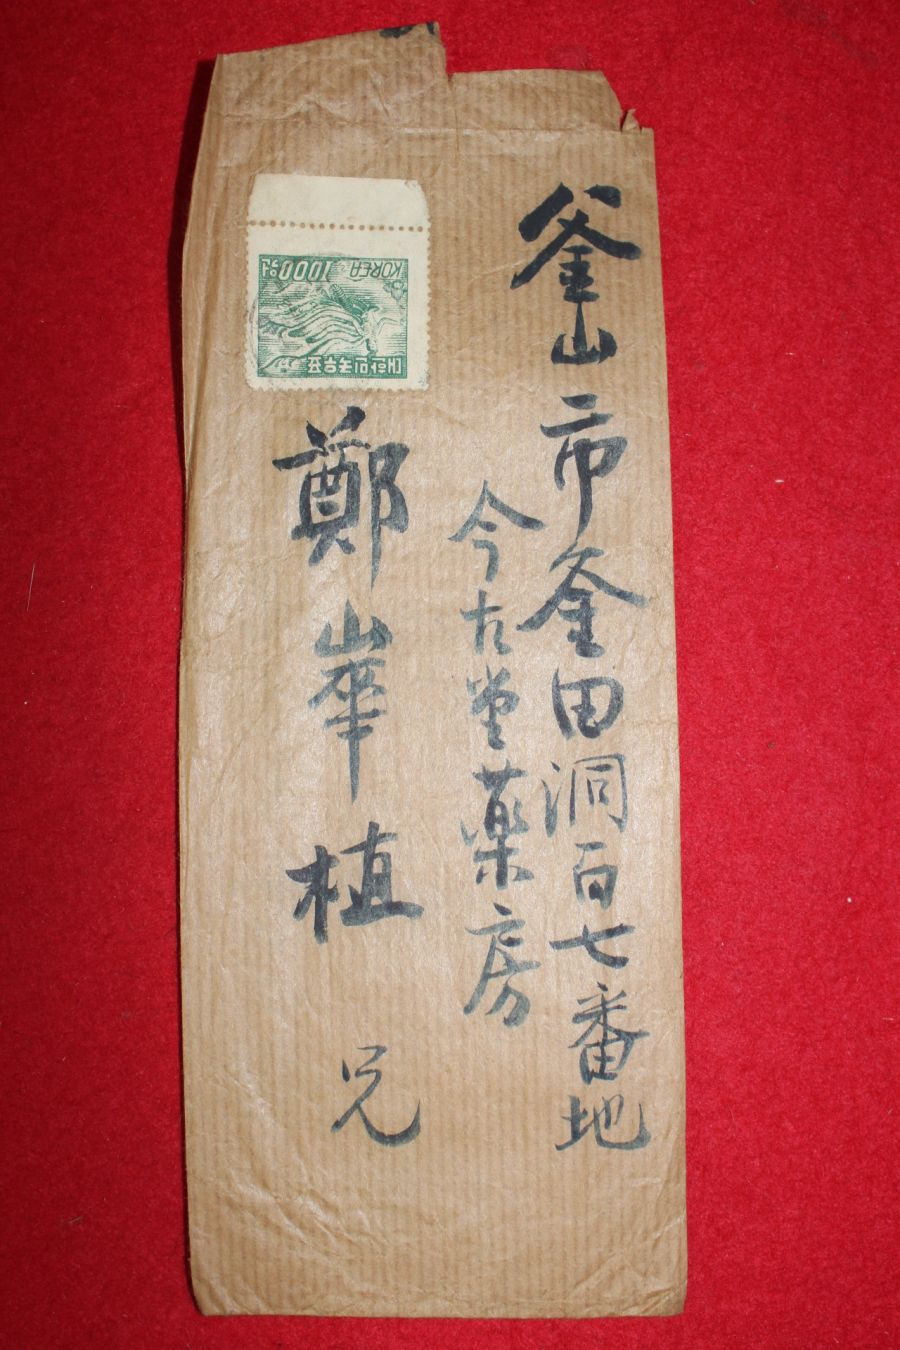 釜山市釜田洞百七番地
今古堂薬房
鄭崋植 兄
KOREA 1000원
대한민국우표